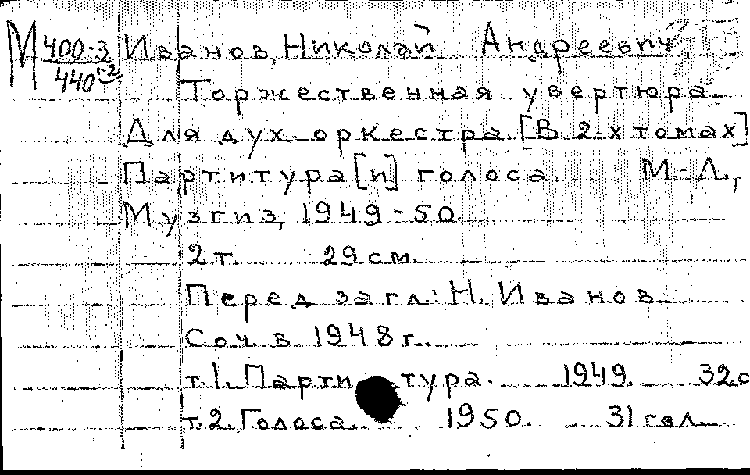 М 400-3 Иванов, Николай Андреевич
440-2
Торжественная увертюра
Для дух. оркестра. [В 2-х томах]
Партитура [и] голоса. М.-Л.,
Музгиз, 1949-50.
2 т. 29 см.
Перед загл: Н. Иванов.
Соч. в 1948 г.
т.1. Партитура. 1949. 32 с
т.2. Голоса. 1950. 31 гол.